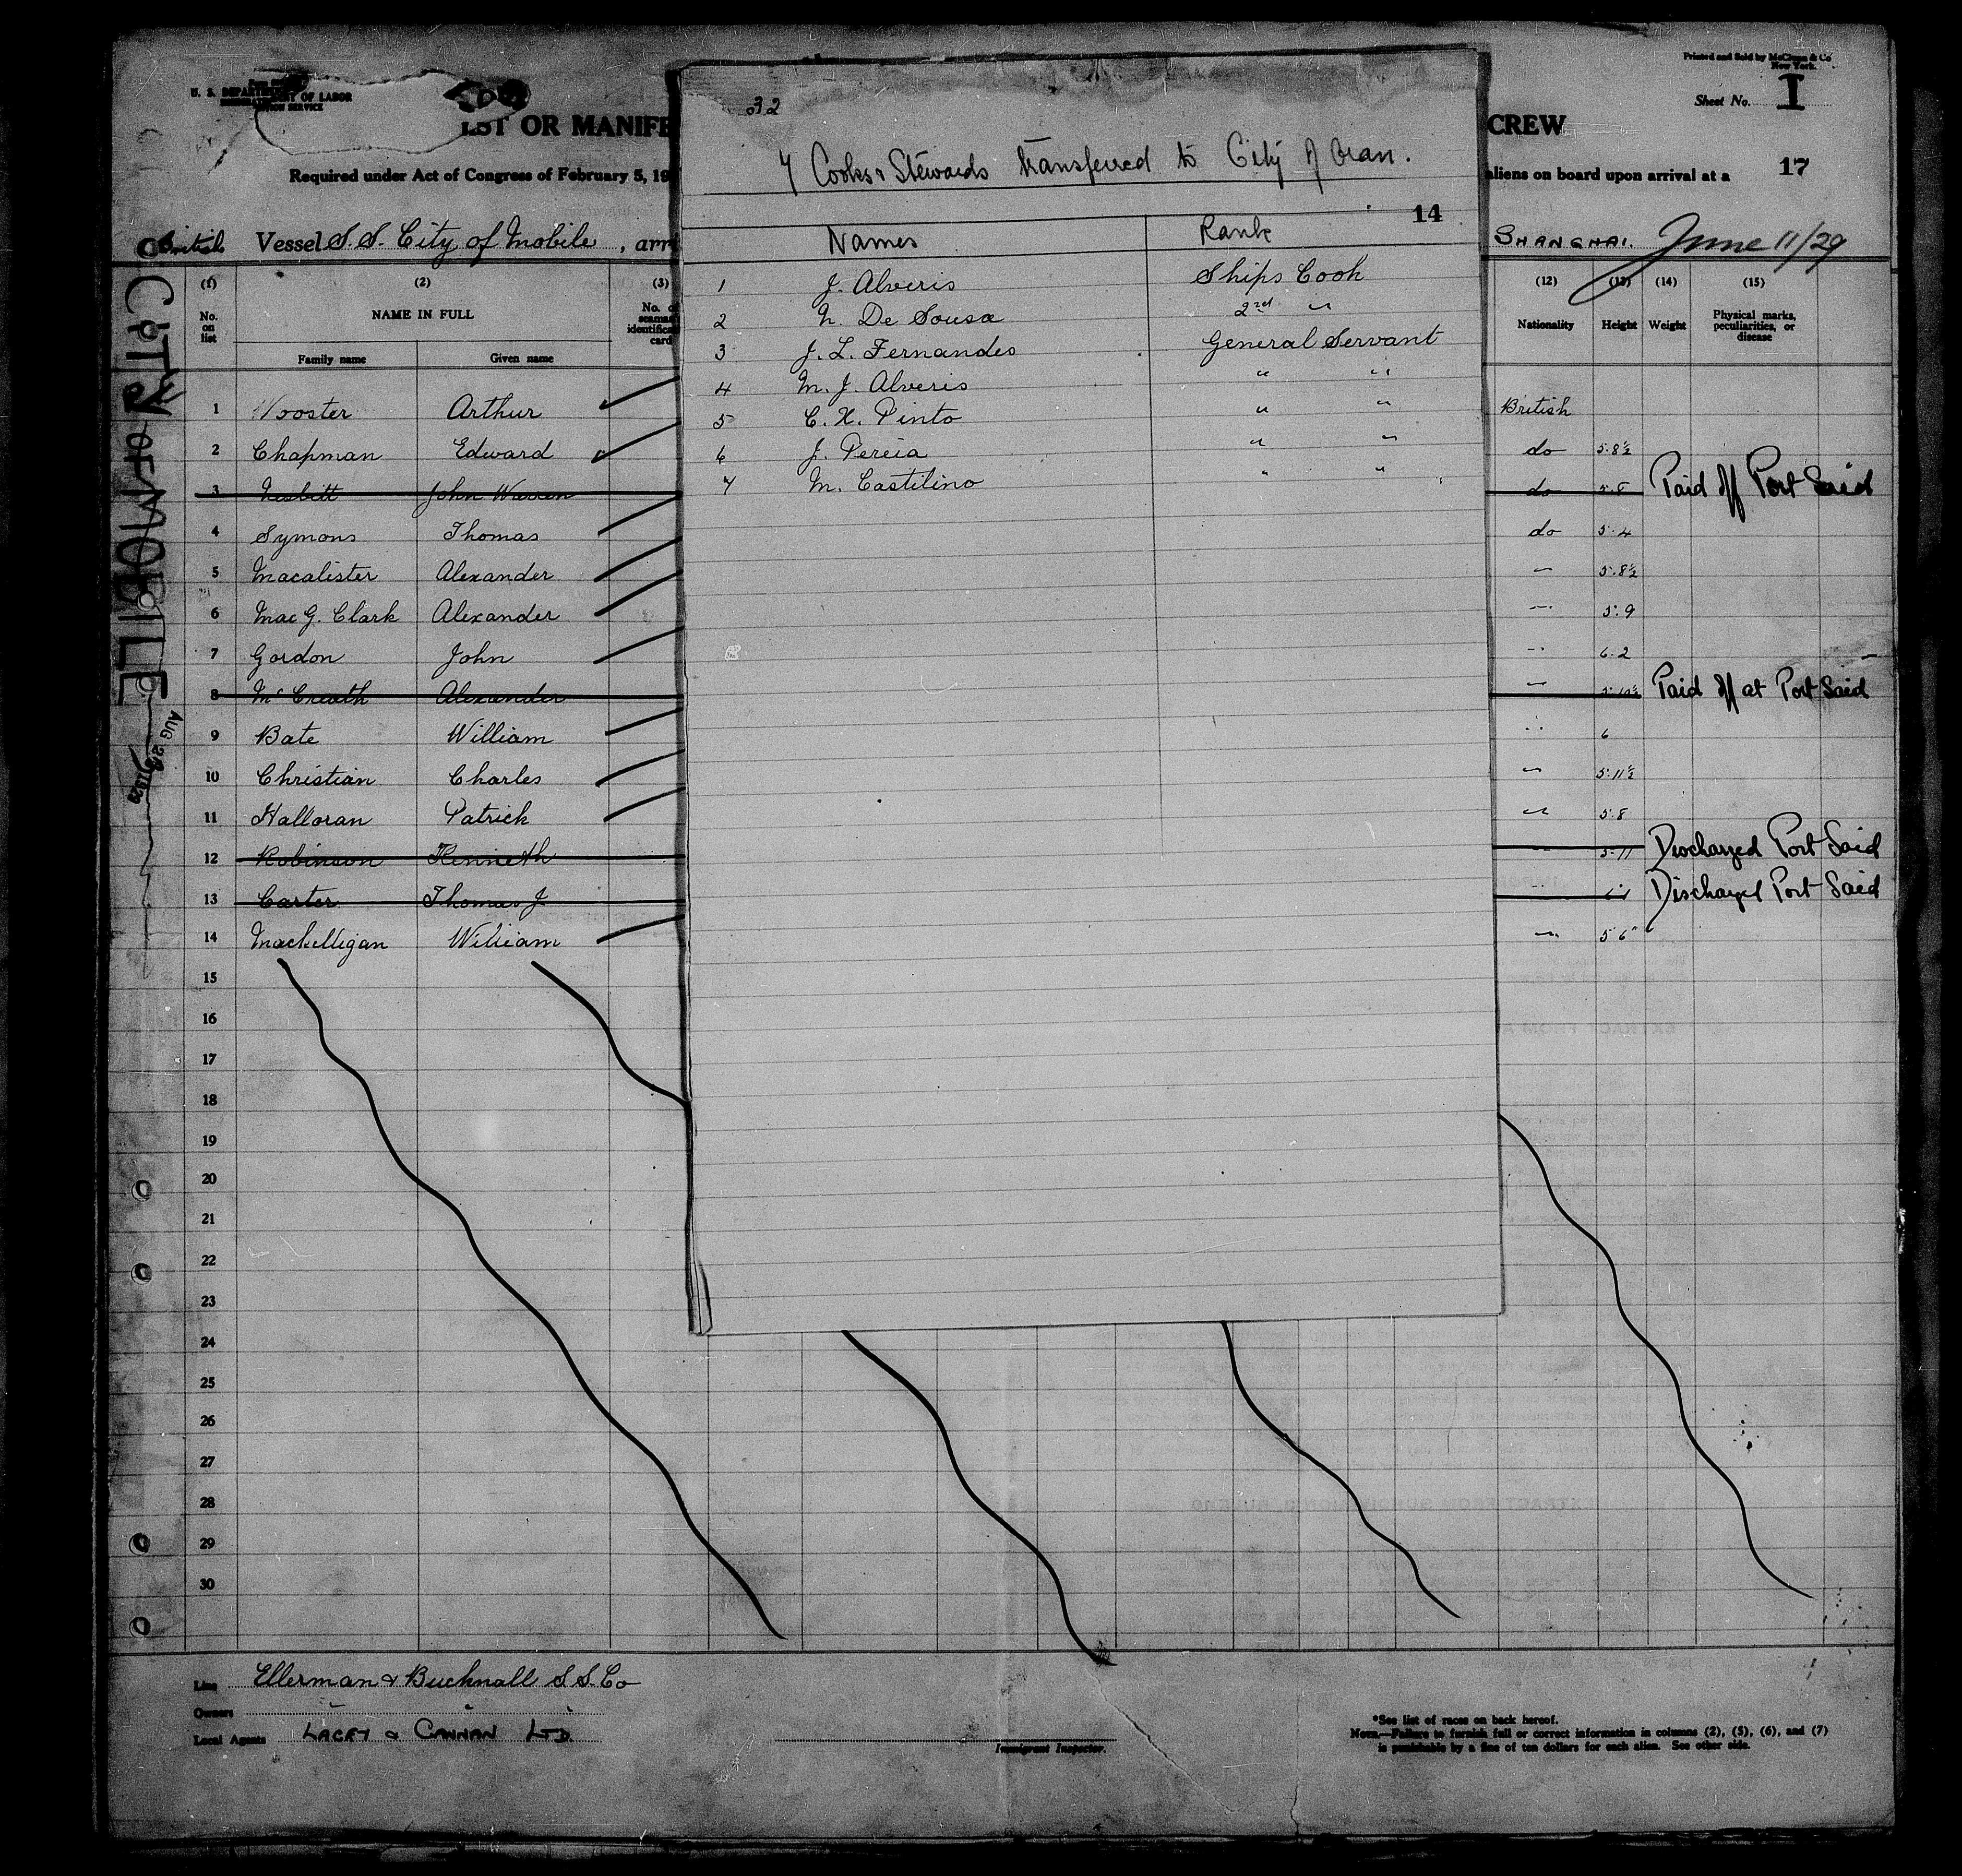 Printed and Sold by McClunn & Co
New York.
U. S. DEPARTMENT OF LABOR
Sheet No. I
LIST OR MANIFE
CREW
Required under Act of Congress of February 5, 19
aliens on board upon arrival at a
17
British Vessel S.S. City of Mobile, arri
SHANGHAI. June 11/29
CITY OF MOBILE
AUG 23 1929
32
7 Cooks & Stewards transferred to City of Oran.
14
Names Rank
1 J. Alveris Ships Cook
2 N. De Sousa 2nd "
3 J. L. Fernandes General Servant
4 M. J. Alveris " "
5 C. X. Pinto " "
6 J. Pereia " "
7 M. Castilino " "
(1) (2) (3) (12) (13) (14) (15)
No. on list NAME IN FULL Nationality Height Weight Physical marks, peculiarities, or disease
Family name Given name
1 Wooster Arthur British
2 Chapman Edward do 5.8½
3 Nesbitt John Warren do 5.8 Paid off Port Said
4 Symons Thomas do 5.4
5 Macalister Alexander " 5.8½
6 Mac G. Clark Alexander " 5.9
7 Gordon John " 6.2
8 McCreath Alexander " 5.10½ Paid off at Port Said
9 Bate William " 6
10 Christian Charles " 5.11½
11 Halloran Patrick " 5.8
12 Robinson Kenneth " 5.11 Discharged Port Said
13 Carter Thomas J " Discharged Port Said
14 Mackelligan William " 5.6"
15
16
17
18
19
20
21
22
23
24
25
26
27
28
29
30
Line Ellerman & Bucknall S.S. Co
Owners
Local Agents LACEY & CANNAN LTD.
Immigrant Inspector.
*See list of races on back hereof.
NOTE.—Failure to furnish full or correct information in columns (2), (5), (6), and (7)
is punishable by a fine of ten dollars for each alien. See other side.